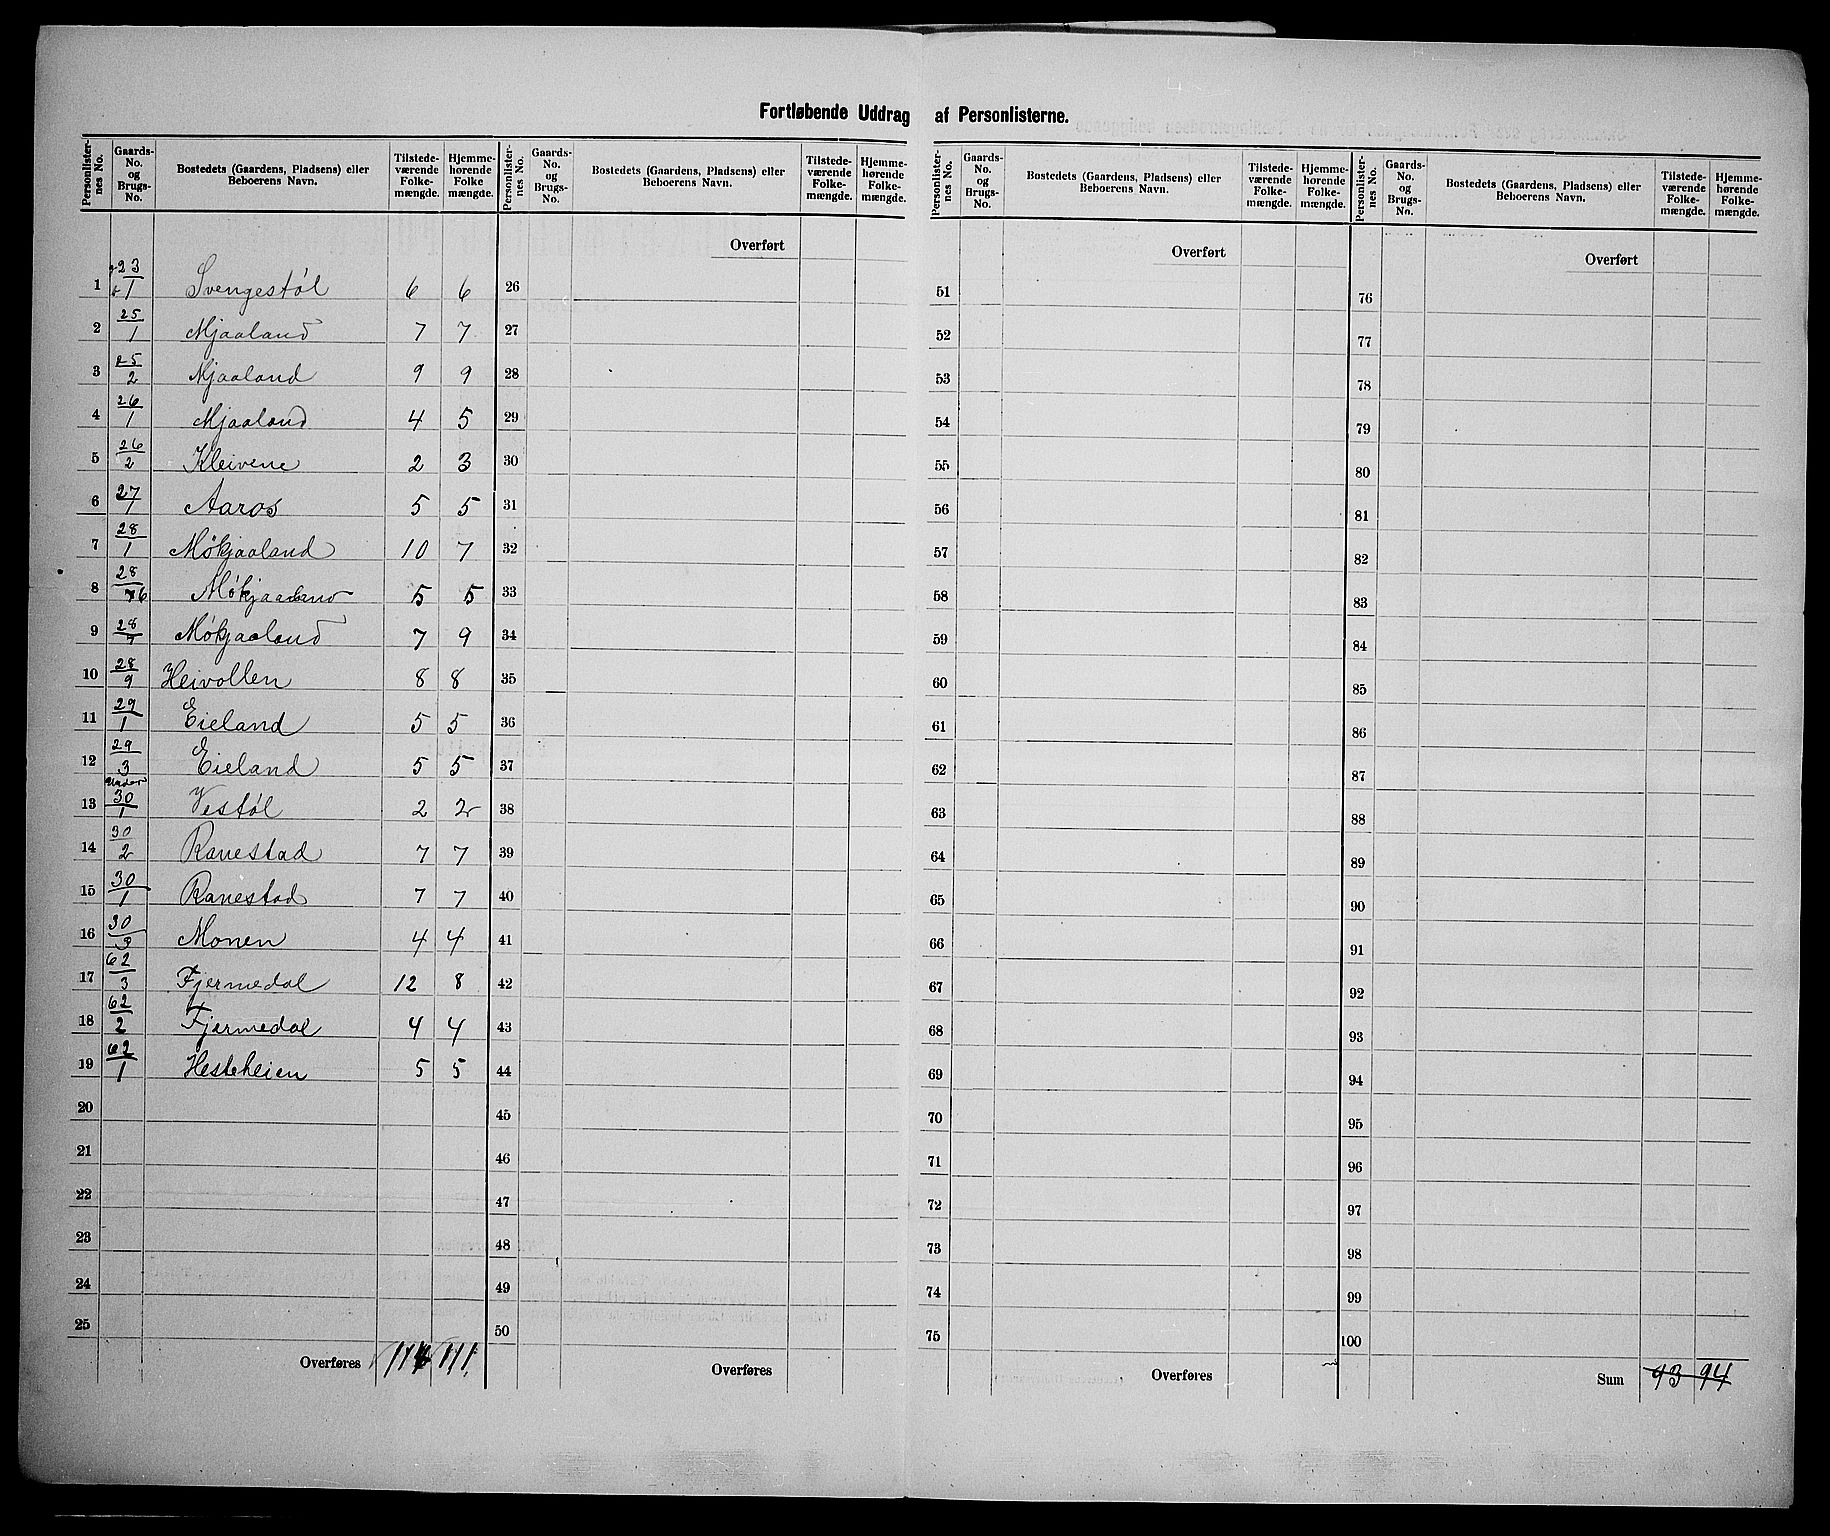 Fortløbende Uddrag af Personlisterne.
Personlister-nes No. | Gaards-No. og Brugs-No. | Bostedets (Gaardens, Pladsens) eller Beboerens Navn. | Tilstede-værende Folke-mængde. | Hjemme-hørende Folke mængde. | Personlister-nes No. | Gaards-No. og Brugs-No. | Bostedets (Gaardens, Pladsens) eller Beboerens Navn. | Tilstede-værende Folke-mængde. | Hjemme-hørende Folke-mængde. | Personlister-nes No. | Gaards-No. og Brugs-No. | Bostedets (Gaardens, Pladsens) eller Beboerens Navn. | Tilstede-værende Folke-mængde. | Hjemme-hørende Folke-mængde. | Personlister-nes No. | Gaards-No. og Brugs-No. | Bostedets (Gaardens, Pladsens) eller Beboerens Navn. | Tilstede-værende Folke-mængde. | Hjemme-hørende Folke-mængde.
Overført Overført Overført
1 23/1 Svengestøl 6 6 26 51 76
2 25/1 Mjaaland 7 7 27 52 77
3 25/2 Mjaaland 9 9 28 53 78
4 26/1 Mjaaland 4 5 29 54 79
5 26/2 Kleivene 2 3 30 55 80
6 27/1 Aaros 5 5 31 56 81
7 28/1 Møkjaaland 10 7 32 57 82
8 28/6 Møkjaaland 5 5 33 58 83
9 28/7 Møkjaaland 7 9 34 59 84
10 28/9 Heivollen 8 8 35 60 85
11 29/1 Eieland 5 5 36 61 86
12 29/3 Eieland 5 5 37 62 87
13 Under 30/1 Vestøl 2 2 38 63 88
14 30/2 Ranestad 7 7 39 64 89
15 30/1 Ranestad 7 7 40 65 90
16 30/3 Monen 4 4 41 66 91
17 62/3 Fjermedal 12 8 42 67 92
18 62/2 Fjermedal 4 4 43 68 93
19 62/1 Hesteheien 5 5 44 69 94
20 45 70 95
21 46 71 96
22 47 72 97
23 48 73 98
24 49 74 99
25 50 75 100
Overføres 114 111 Overføres Overføres Sum 93 94